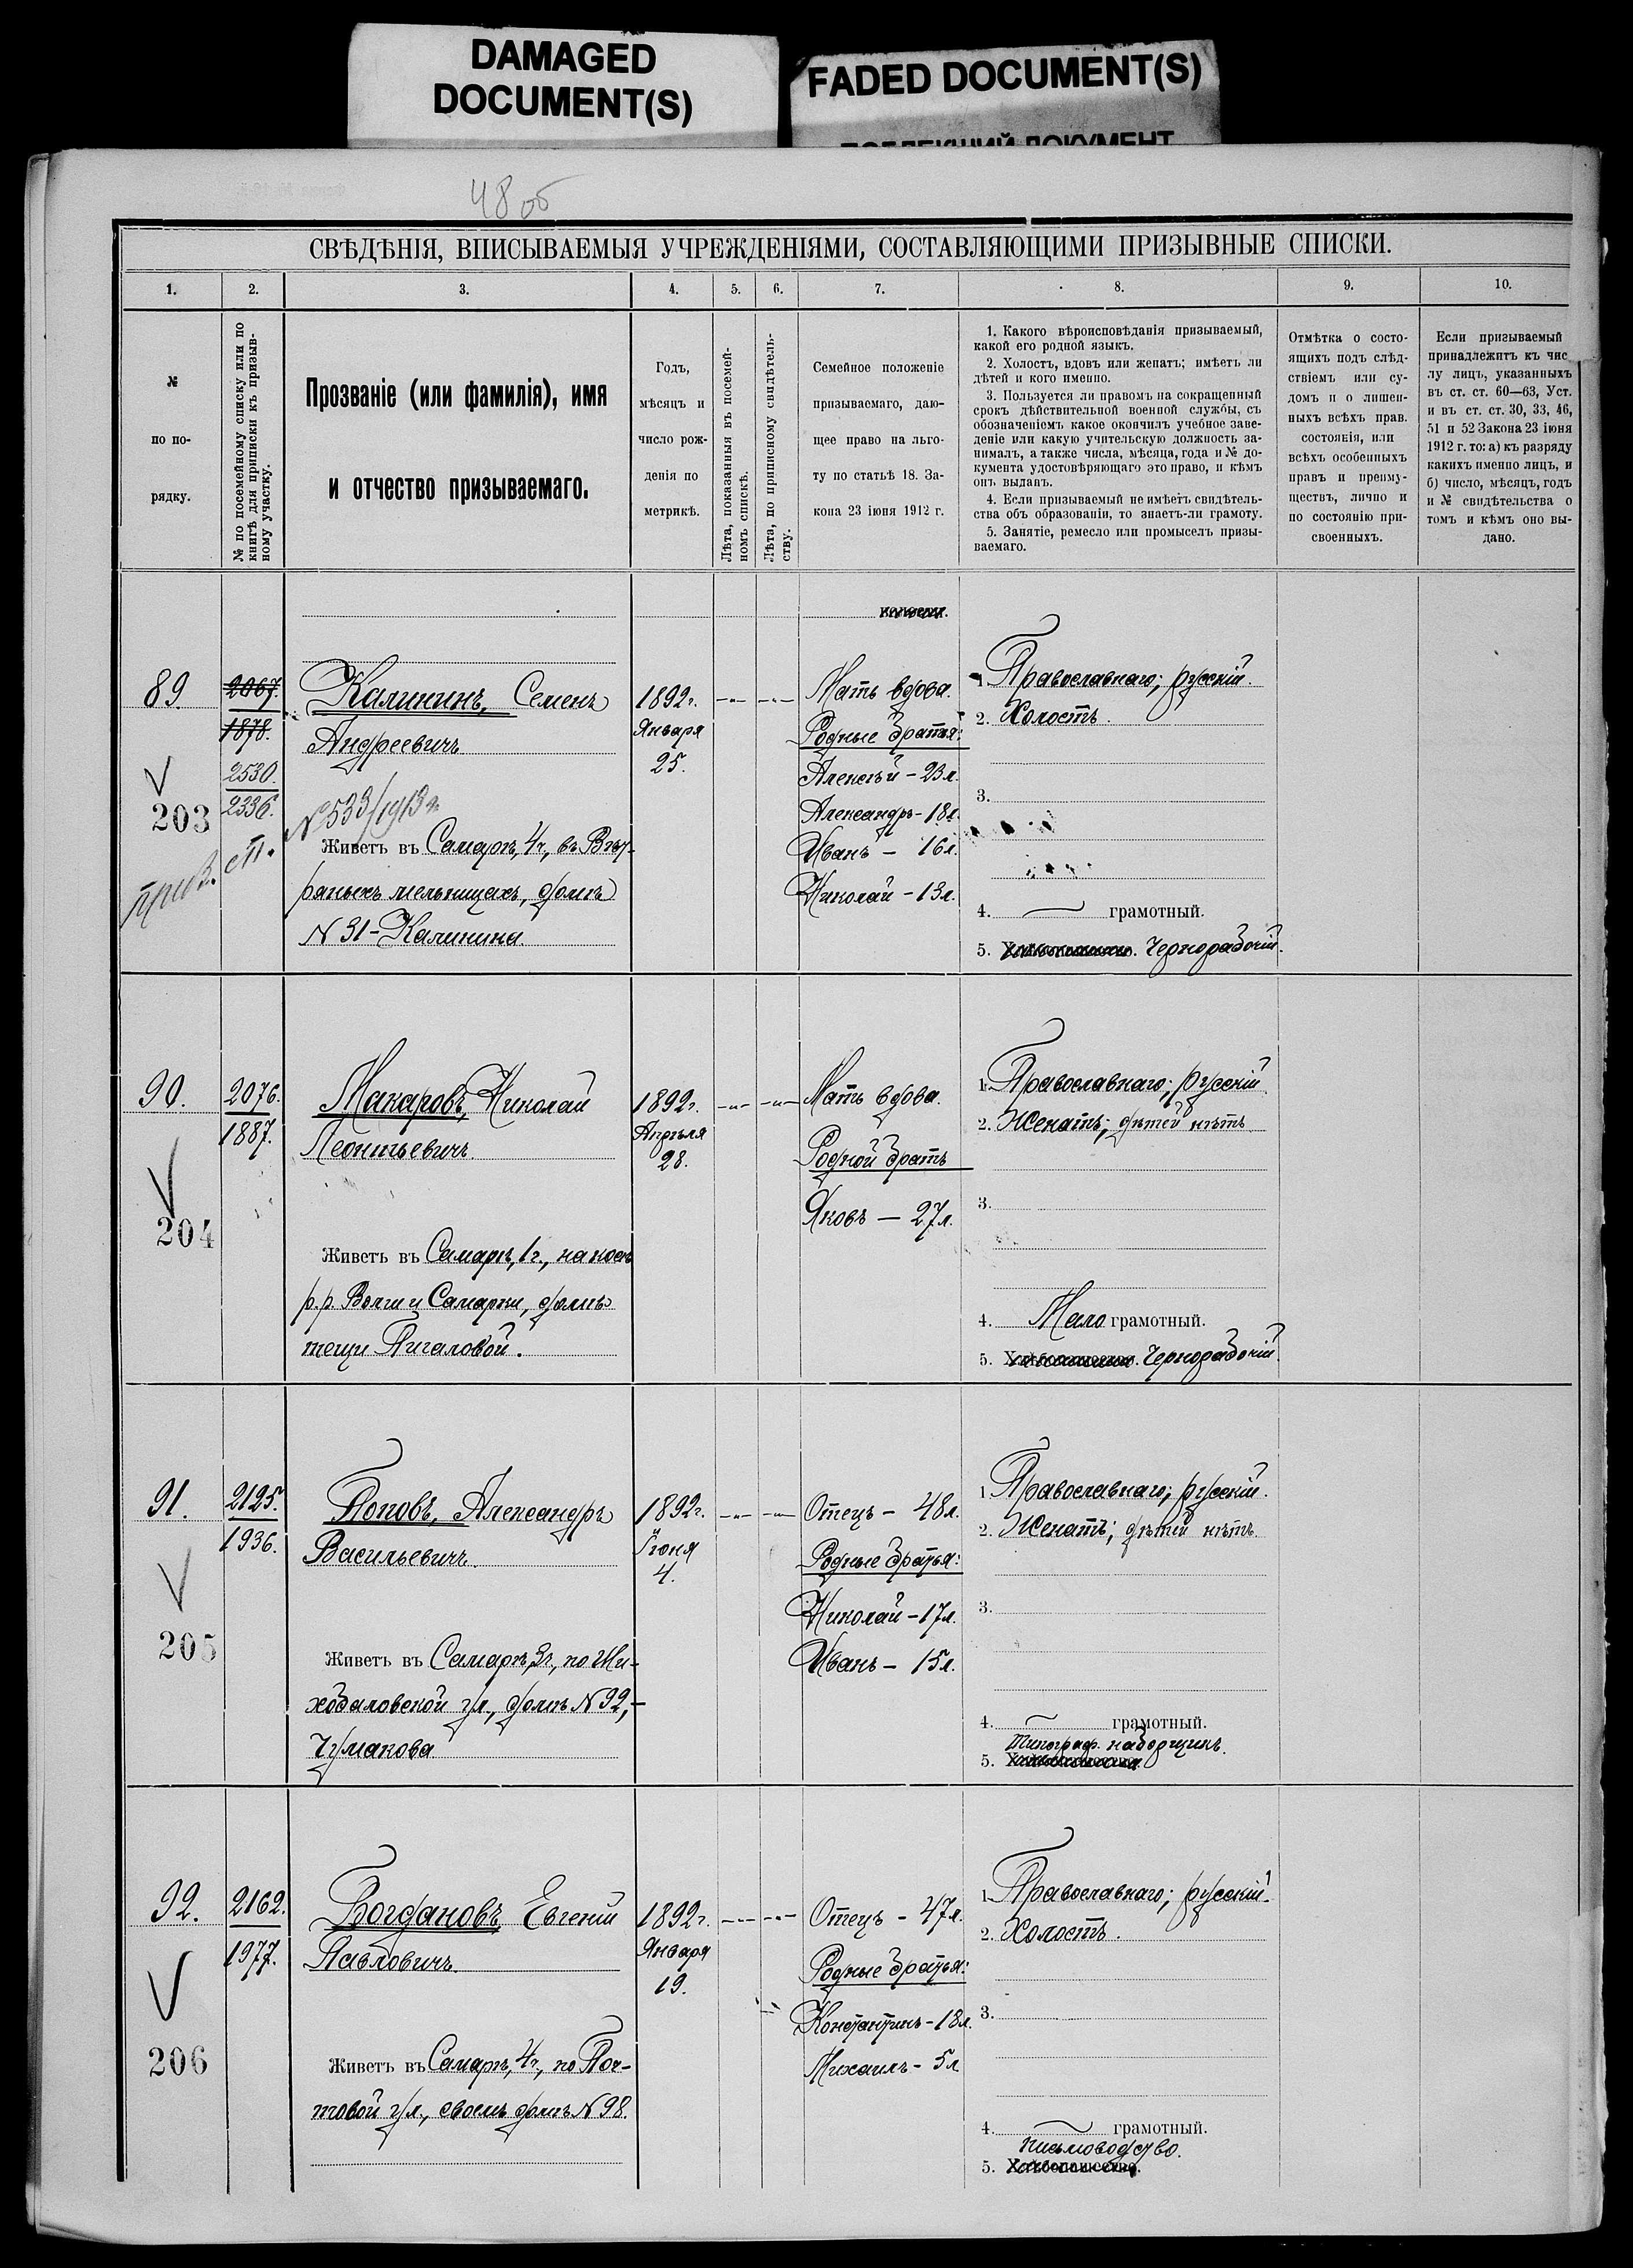 DAMAGED
DOCUMENT(S)
FADED DOCUMENT(S)
48 об
СВѢДѢНІЯ, ВПИСЫВАЕМЫЯ УЧРЕЖДЕНІЯМИ, СОСТАВЛЯЮЩИМИ ПРИЗЫВНЫЕ СПИСКИ.
1. 2. 3. 4. 5. 6. 7. 8. 9. 10.
№
по по-
рядку.
№ по посемейному списку или по
книгѣ для приписки къ призыв-
ному участку.
Прозваніе (или фамилія), имя
и отчество призываемаго.
Годъ,
мѣсяцъ и
число рож-
денія по
метрикѣ.
Лѣта, показанныя въ посемей-
номъ спискѣ.
Лѣта, по приписному свидѣтель-
ству.
Семейное положеніе
призываемаго, даю-
щее право на льго-
ту по статьѣ 18. За-
кона 23 іюня 1912 г.
1. Какого вѣроисповѣданія призываемый,
какой его родной языкъ.
2. Холостъ, вдовъ или женатъ; имѣетъ ли
дѣтей и кого именно.
3. Пользуется ли правомъ на сокращенный
срокъ дѣйствительной военной службы, съ
обозначеніемъ какое окончилъ учебное заве-
деніе или какую учительскую должность за-
нималъ, а также числа, мѣсяца, года и № до-
кумента удостовѣряющаго это право, и кѣмъ
онъ выданъ.
4. Если призываемый не имѣетъ свидѣтель-
ства объ образованіи, то знаетъ-ли грамоту.
5. Занятіе, ремесло или промыселъ призы-
ваемаго.
Отмѣтка о состо-
ящихъ подъ слѣд-
ствіемъ или су-
домъ и о лишен-
ныхъ всѣхъ прав.
состоянія, или
всѣхъ особенныхъ
правъ и преиму-
ществъ, лично и
по состоянію при-
своенныхъ.
Если призываемый
принадлежитъ къ чис
лу лицъ, указанныхъ
въ ст. ст. 60—63, Уст.
и въ ст. ст. 30, 33, 46,
51 и 52 Закона 23 іюня
1912 г. то: а) къ разряду
какихъ именно лицъ, и
б) число, мѣсяцъ, годъ
и № свидѣтельства о
томъ и кѣмъ оно вы-
дано.
89.
203
2067.
1878.
2530.
2336.
Калининъ, Семенъ
Андреевичъ
№ 533/1913 г.
Живетъ въ Самарѣ, 4 ч., въ Вѣт-
раныхъ мельницахъ, домъ
N 31 - Калинина.
1892 г.
Января
25.
Мать вдова.
Родные братья:
Алексѣй - 23 л.
Александръ - 18 л.
Иванъ - 16 л.
Николай - 13 л.
1. Православнаго; русскій.
2. Холостъ.
3.
4. грамотный.
5. Хлѣбопашество. Чернорабочій.
90.
204
2076.
1887.
Макаровъ, Николай
Леонтьевичъ
Живетъ въ Самарѣ, 1 ч., на косѣ
р.р. Волги и Самарки, домъ
тещи Пигаловой.
1892 г.
Апрѣля
28.
Мать вдова.
Родной братъ
Яковъ — 27 л.
1. Православнаго; русскій
2. Женатъ; дѣтей нѣтъ
3.
4. Мало грамотный.
5. Хлѣбопашество. Чернорабочій.
91.
205
2125.
1936.
Поповъ, Александръ
Васильевичъ
Живетъ въ Самарѣ, 3 ч., по Ми-
хайловской ул., домъ N 92, -
Чумакова
1892 г.
Іюня
4.
Отецъ - 48 л.
Родные братья:
Николай - 17 л.
Иванъ - 15 л.
1. Православнаго; русскій.
2. Женатъ; дѣтей нѣтъ.
3.
4. грамотный.
Типограф. наборщикъ.
5. Хлѣбопашество.
92.
206
2162.
1977.
Богдановъ, Евгеній
Павловичъ.
Живетъ въ Самарѣ, 4 ч., по Поч-
товой ул., своемъ домѣ N 98.
1892 г.
Января
19.
Отецъ - 47 л.
Родные братья:
Константинъ - 18 л.
Михаилъ - 5 л
1. Православнаго; русскій.
2. Холостъ.
3.
4. грамотный.
Письмоводство.
5. Хлѣбопашество.